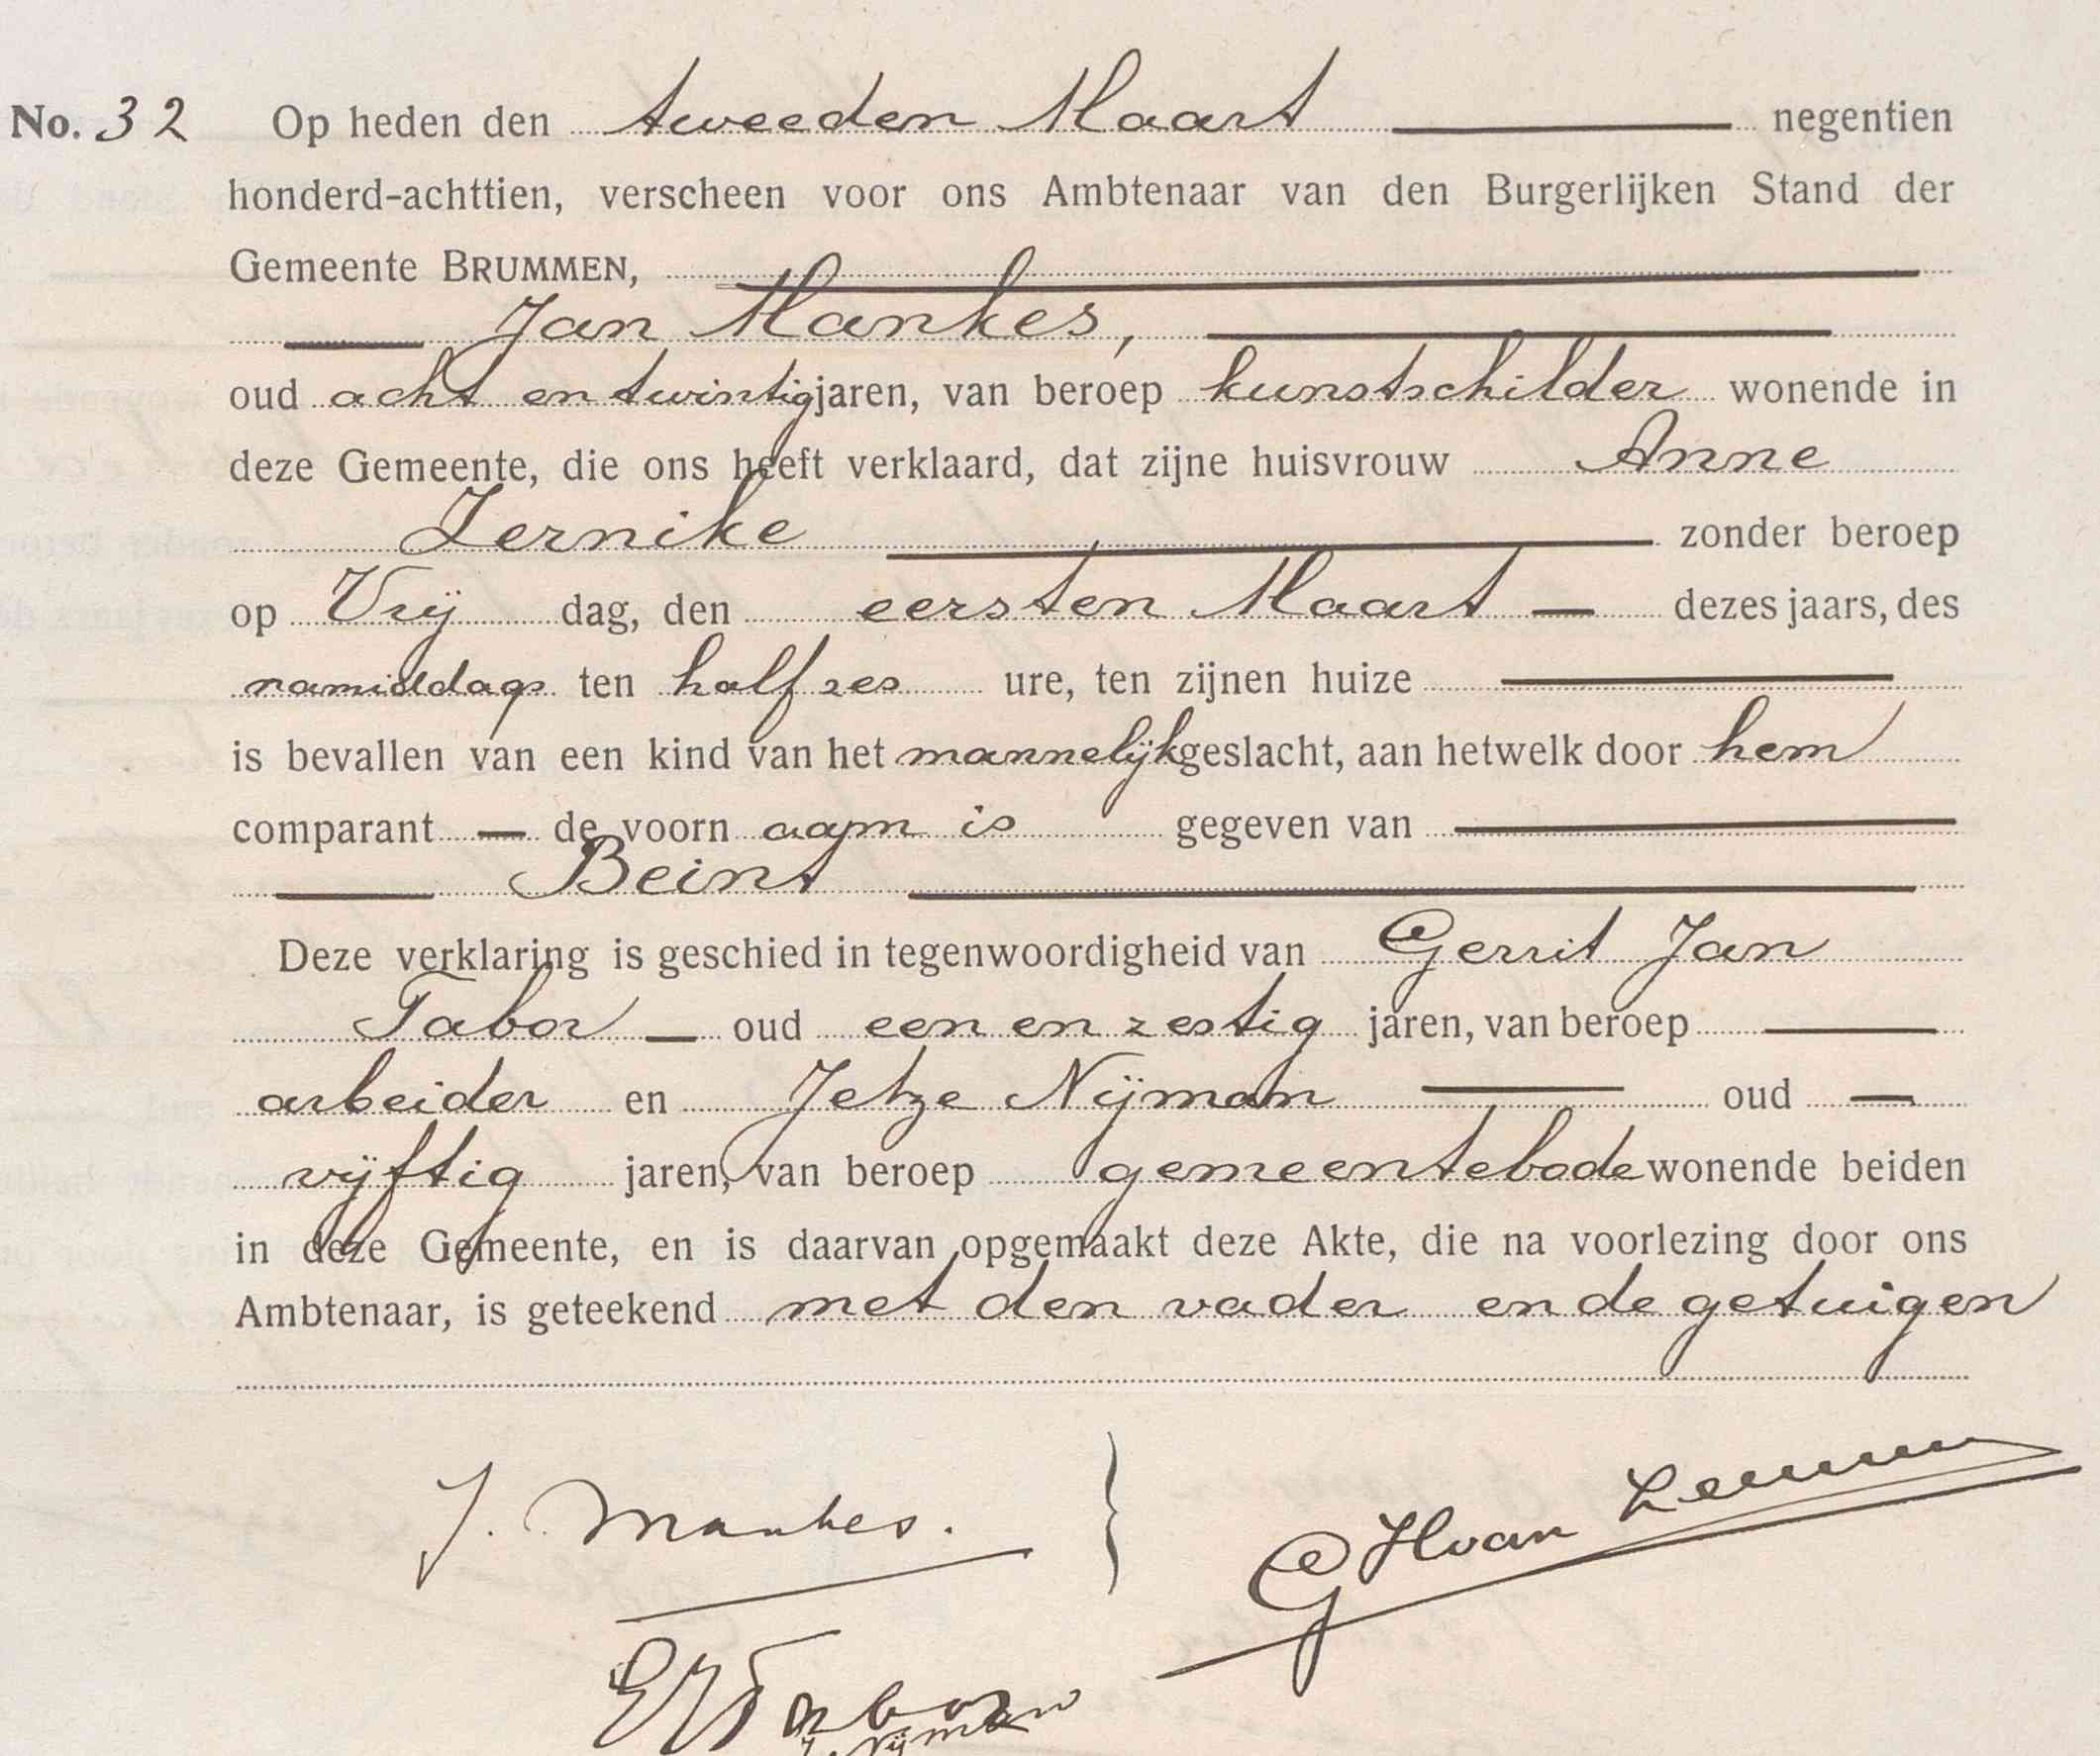 No. 32 Op heden den tweeden Maart negentien
honderd-achttien, verscheen voor ons Ambtenaar van den Burgerlijken Stand der
Gemeente BRUMMEN,
Jan Mankes,
oud acht en twintig jaren, van beroep kunstschilder wonende in
deze Gemeente, die ons heeft verklaard, dat zijne huisvrouw Anne
Zernike zonder beroep
op Vrij dag, den eersten Maart dezes jaars, des
namiddags ten half zes ure, ten zijnen huize
is bevallen van een kind van het mannelijk geslacht, aan hetwelk door hem
comparant de voorn aam is gegeven van
Beint
Deze verklaring is geschied in tegenwoordigheid van Gerrit Jan
Tabor oud een en zestig jaren, van beroep
arbeider en Jetze Nijman oud
vijftig jaren, van beroep gemeentebode wonende beiden
in deze Gemeente, en is daarvan opgemaakt deze Akte, die na voorlezing door ons
Ambtenaar, is geteekend met den vader en de getuigen
J. Mankes.
GHvan
Tabor
Nijman